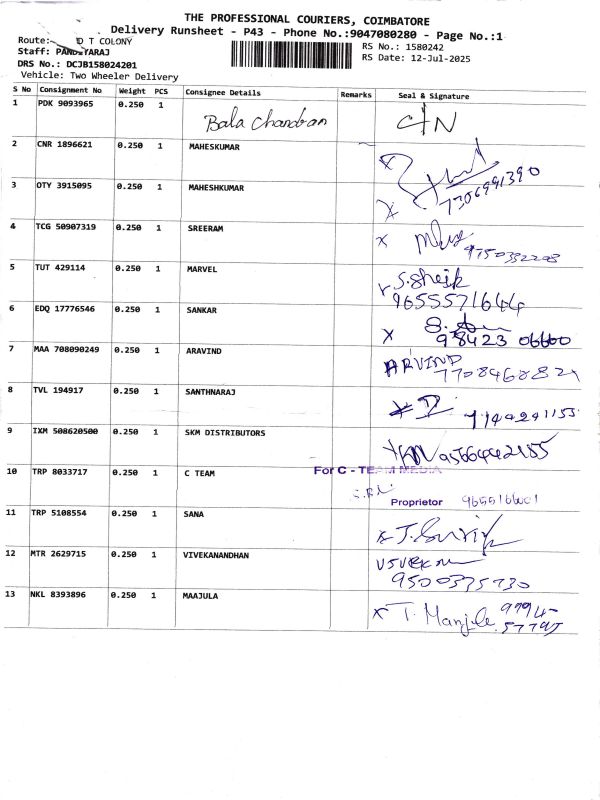 THE PROFESSIONAL COURIERS, COIMBATORE
Delivery Runsheet - P43 - Phone No.:9047080280 - Page No.:1
Route: D T COLONY
RS No.: 1580242
Staff: PANDIYARAJ
RS Date: 12-Jul-2025
DRS No.: DCJB158024201
Vehicle: Two Wheeler Delivery
S No Consignment No Weight PCS Consignee Details Remarks Seal & Signature
1 PDK 9093965 0.250 1 Bala Chandran
2 CNR 1896621 0.250 1 MAHESKUMAR
7306991390
3 OTY 3915095 0.250 1 MAHESHKUMAR
4 TCG 50907319 0.250 1 SREERAM
9750332208
5 TUT 429114 0.250 1 MARVEL S.Sheik
9655571644
6 EDQ 17776546 0.250 1 SANKAR
98423 06600
7 MAA 708090249 0.250 1 ARAVIND ARVIND
8 TVL 194917 0.250 1 SANTHNARAJ
9 IXM 508620500 0.250 1 SKM DISTRIBUTORS
10 TRP 8033717 0.250 1 C TEAM For C - TEAM MEDIA
Proprietor
11 TRP 5108554 0.250 1 SANA
12 MTR 2629715 0.250 1 VIVEKANANDHAN
9500335730
13 NKL 8393896 0.250 1 MAAJULA T. Manjula